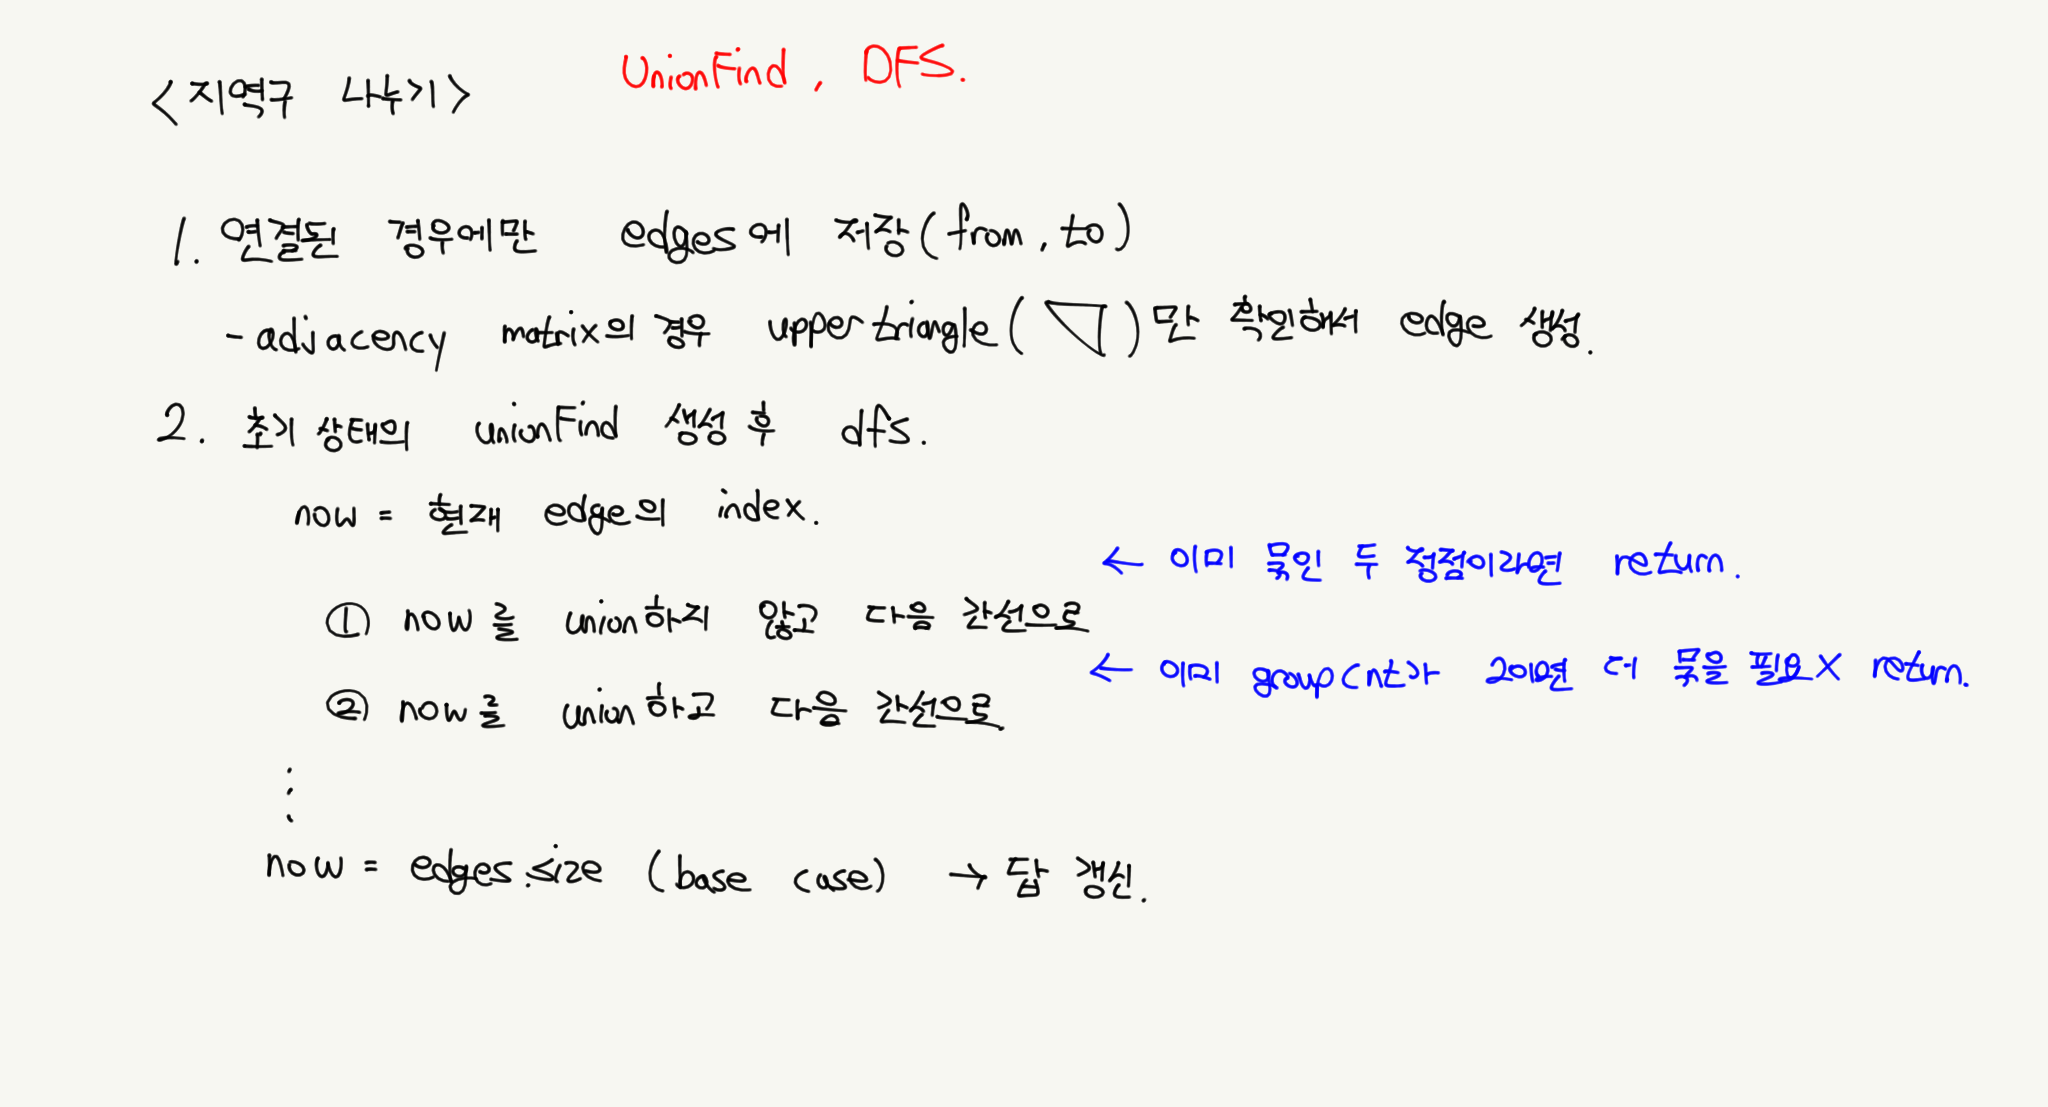 <지역구 나누기>
UnionFind, DFS.
1. 연결된 경우에만 edges에 저장(from, to)
- adjacency matrix의 경우 upper triangle( )만 확인해서 edge 생성.
2. 초기 상태의 unionFind 생성 후 dfs.
now = 현재 edge의 index.
← 이미 묶인 두 정점이라면 return.
① now를 union하지 않고 다음 간선으로
← 이미 groupCnt가 2이면 더 묶을 필요X return.
② now를 union하고 다음 간선으로
⋮
now = edges.size (base case) → 답 갱신.